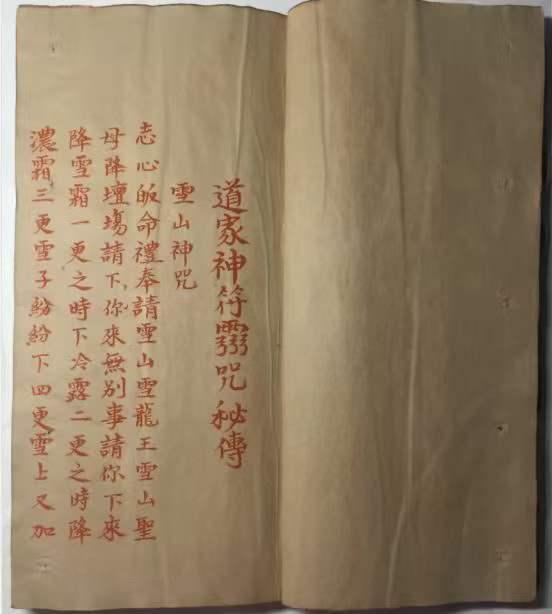 道家神符靈咒秘傳
雪山神咒
志心皈命禮奉請雪山雪龍王雪山聖
母降壇場請下你來無別事請你下來
降雪霜一更之時下冷露二更之時降
濃霜三更雪子紛紛下四更雪上又加